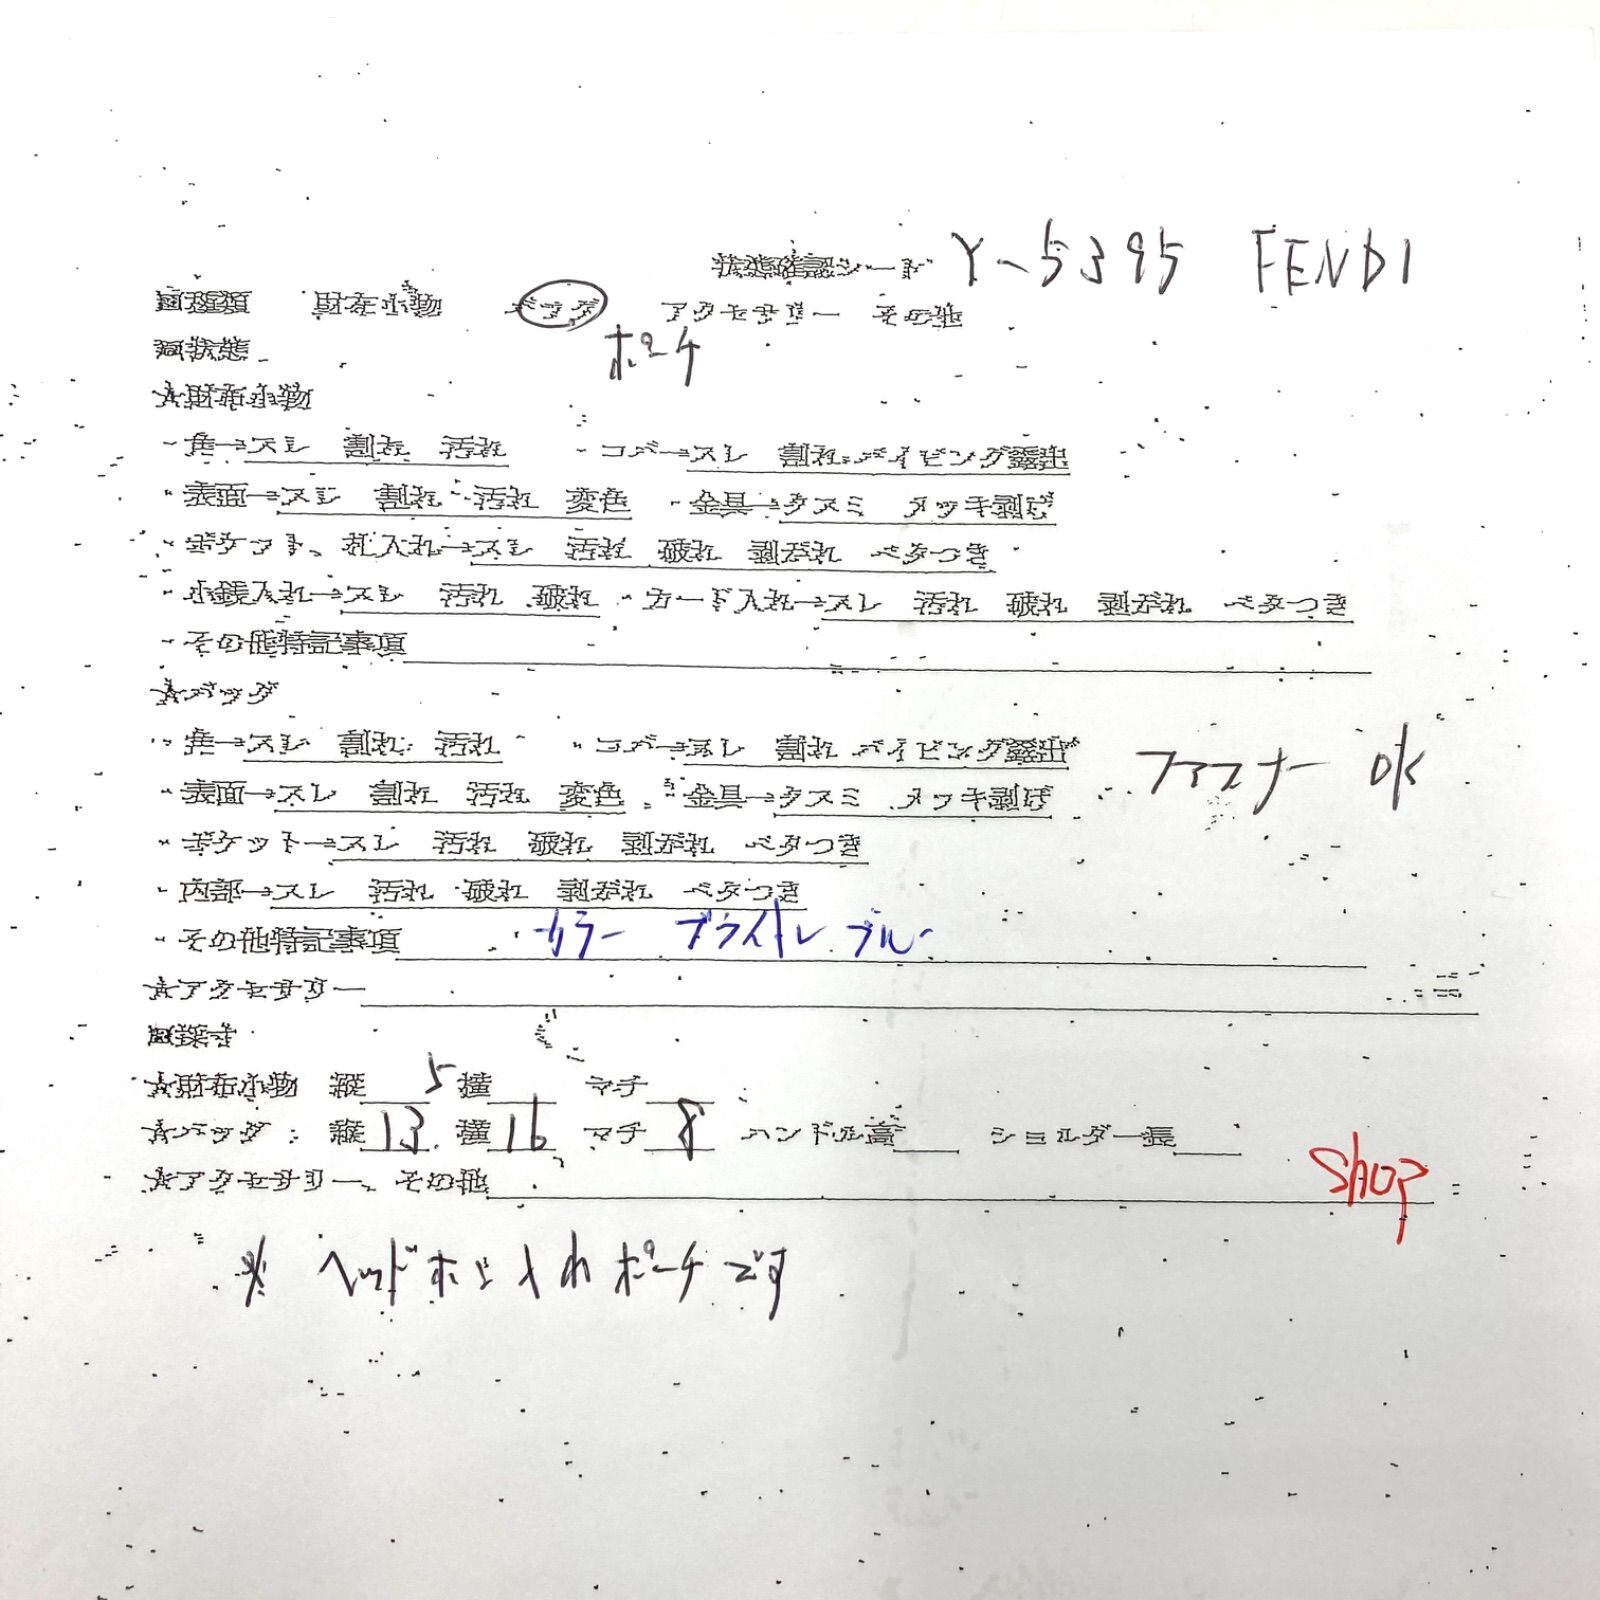 状態確認シート Y-5395 FENDI
財布小物 バッグ アクセサリー その他
状態
ポーチ
☆財布小物
・角→スレ 割れ 汚れ ・コバ→スレ 割れ パイピング露出
・表面→スレ 割れ 汚れ 変色 ・金具→クスミ メッキ剥げ
・ポケット、札入れ→スレ 汚れ 破れ 剥がれ ベタつき
・小銭入れ→スレ 汚れ 破れ ・カード入れ→スレ 汚れ 破れ 剥がれ ベタつき
・その他特記事項
☆バッグ
・角→スレ 割れ 汚れ ・コバ→スレ 割れ パイピング露出 ファスナー OK
・表面→スレ 割れ 汚れ 変色 ・金具→クスミ メッキ剥げ
・ポケット→スレ 汚れ 破れ 剥がれ ベタつき
・内部→スレ 汚れ 破れ 剥がれ ベタつき
・その他特記事項 カラー ブライトレ ブルー
☆アクセサリー
採寸
☆財布小物 縦 5 横 マチ
☆バッグ : 縦 13 横 16 マチ 8 ハンドル高 ショルダー長
☆アクセサリー、その他 SHOP
※ ヘッドホン入れポーチです